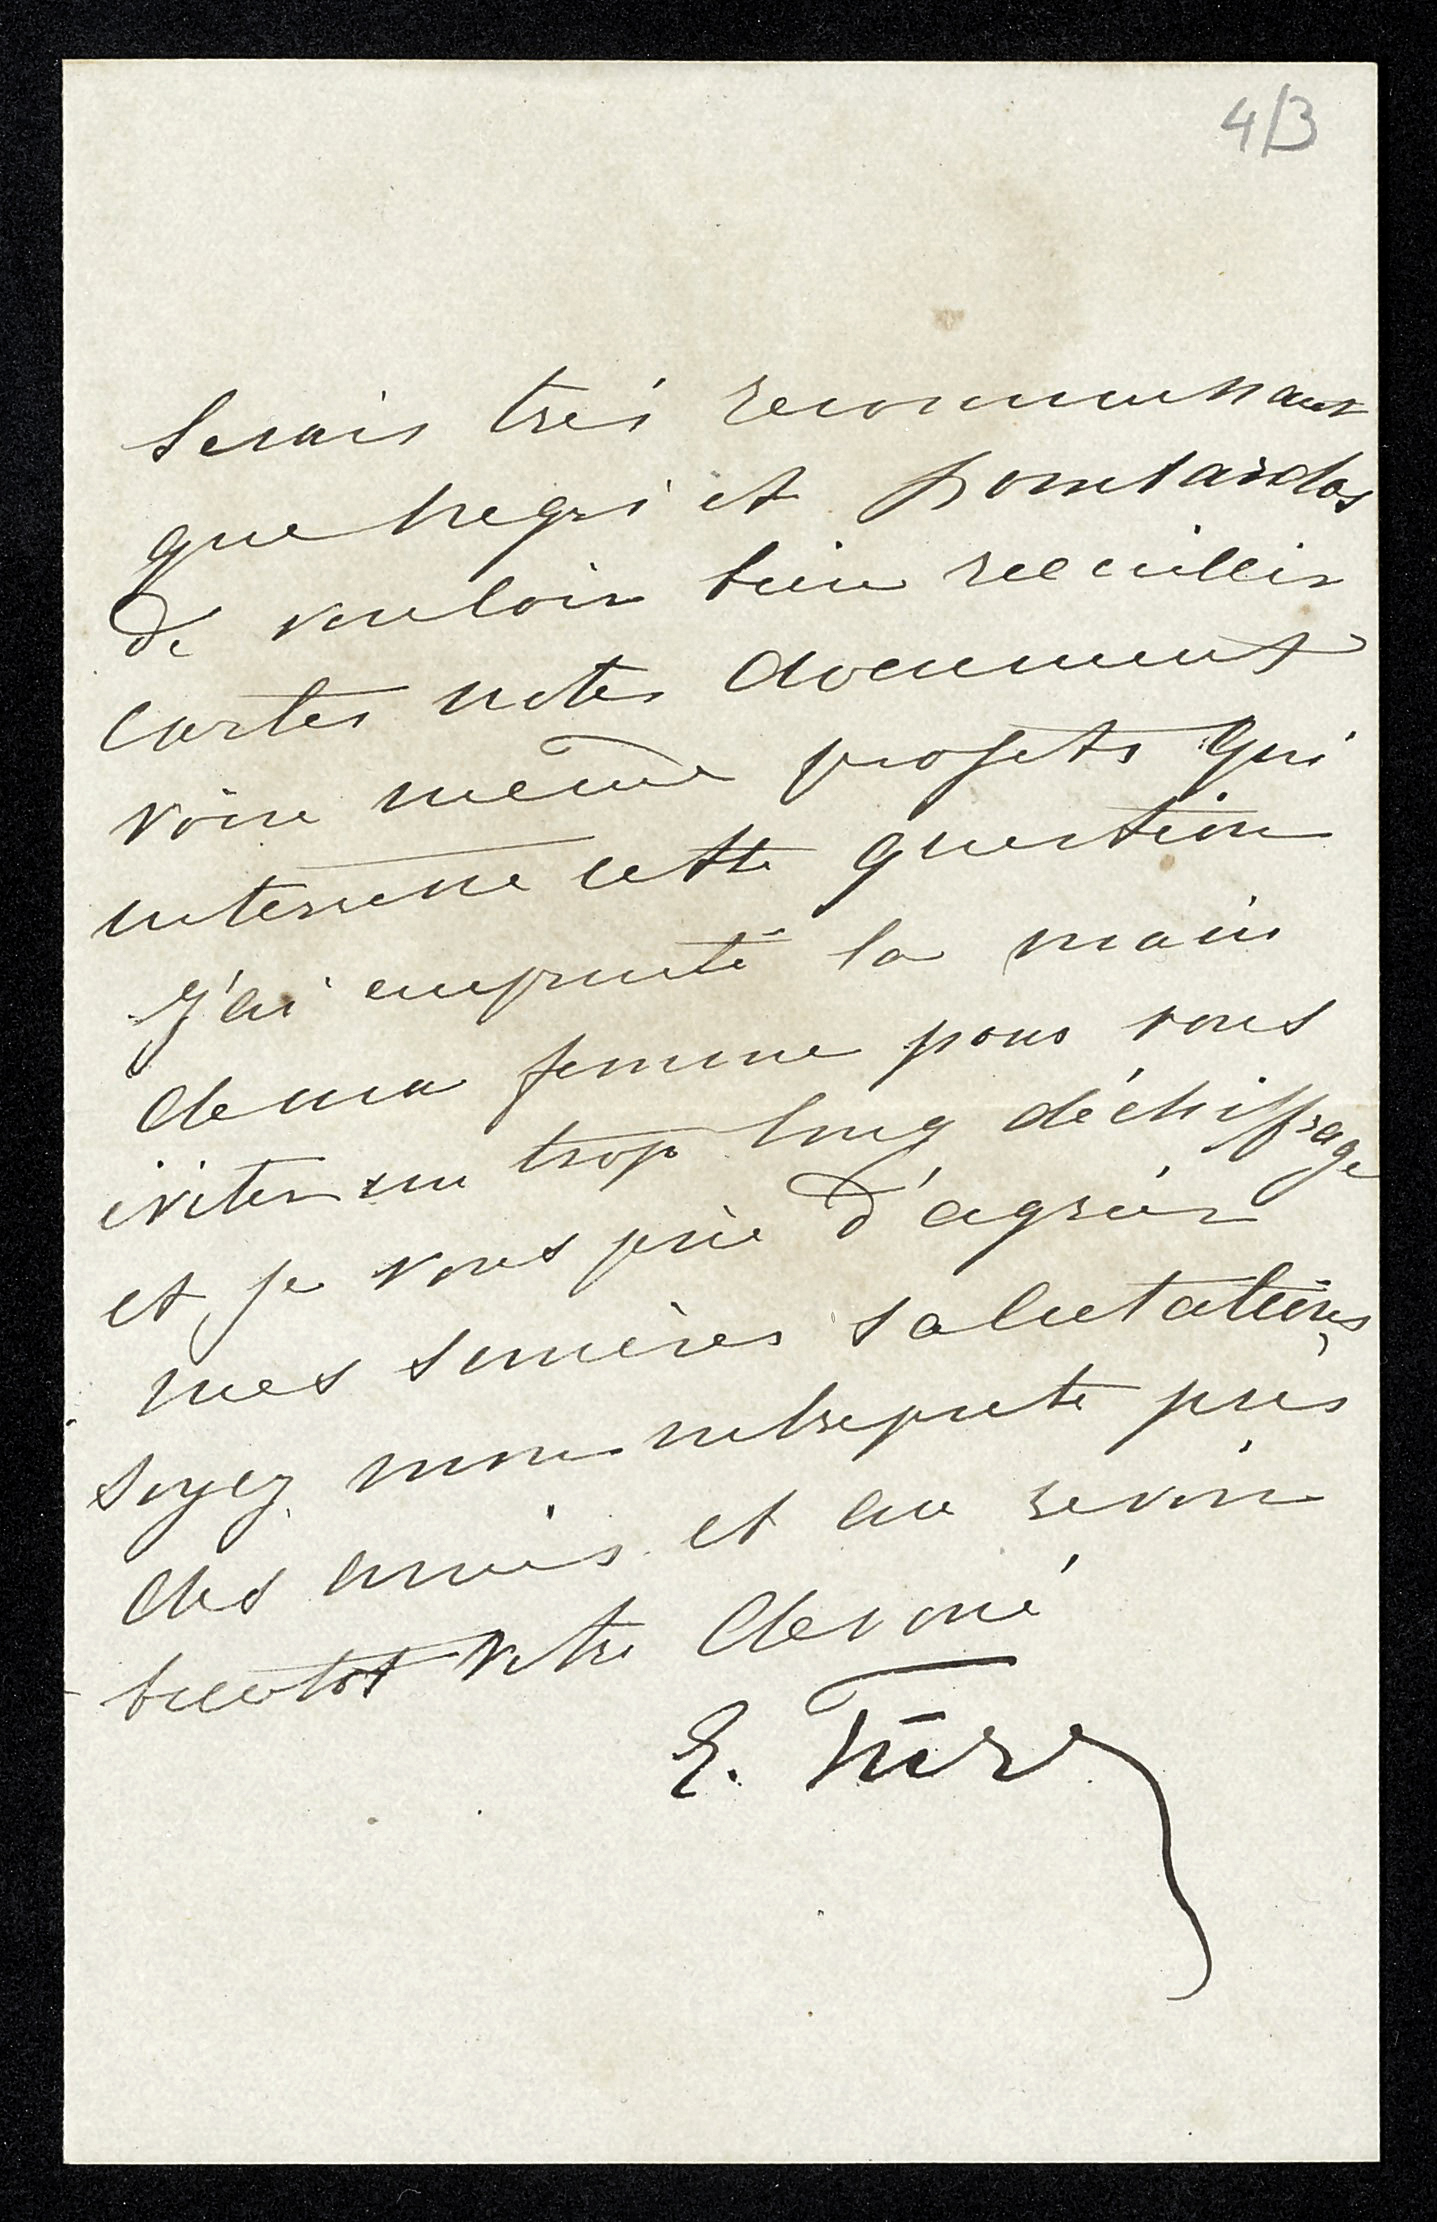 4/3
serais très reconnaissant
que Negri et
de vouloir bien recueillir
cartes notes document
voire même projets qui
interesse cette question
J'ai emprunté la main
de ma femme pour vous
éviter un trop long déchiffrage
et je vous prie d'agréer
mes sincères salutations,
soyez mon interprete près
des amis et au revoir
bientot votre devoué
E. Türr